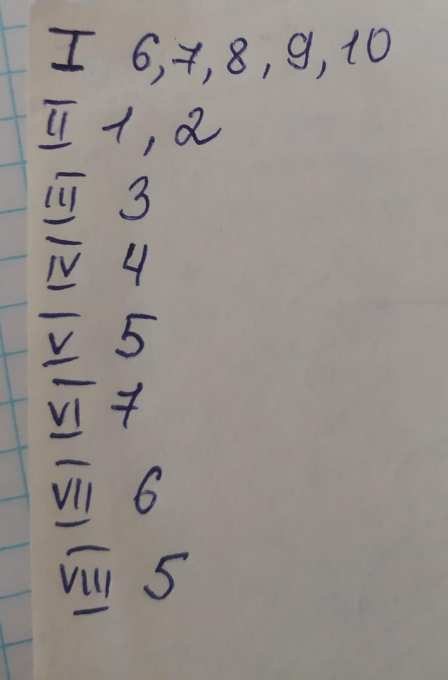 I 6, 7, 8, 9, 10
II 1, 2
III 3
IV 4
V 5
VI 7
VII 6
VIII 5